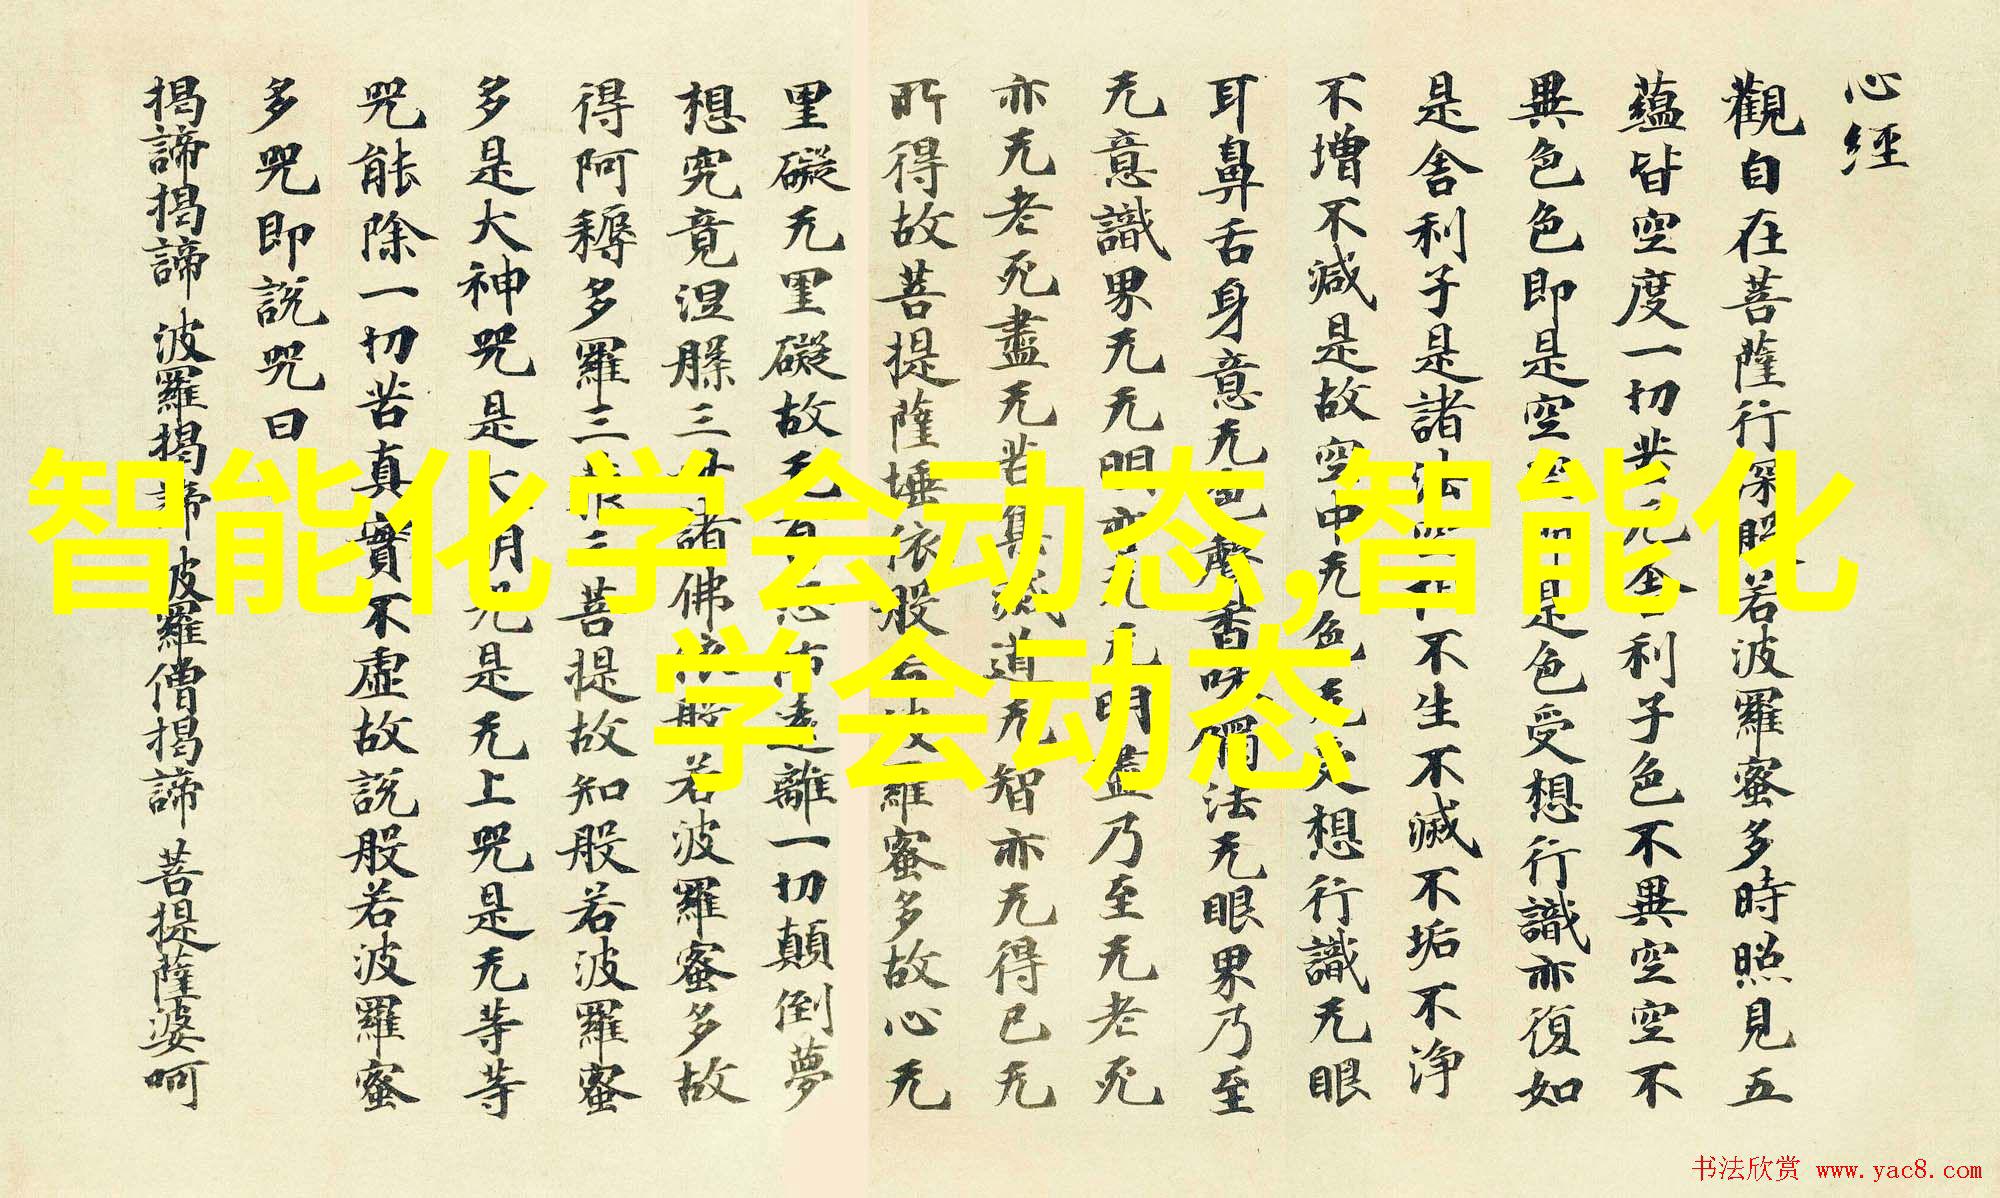 心經
觀自在菩薩行深般若波羅蜜多時照見五
蘊皆空度一切苦厄舍利子色不異空空不
異色色即是空空即是色受想行識亦復如
是舍利子是諸法空相不生不滅不垢不浄
不增不減是故空中无色无受想行識无眼
耳鼻舌身意无色聲香味觸法无眼界乃至
无意識界无无明亦无无明盡乃至无老死
亦无老死盡无苦集滅道无智亦无得已无
所得故菩提薩埵依般若波羅蜜多故心无
罣礙无罣礙故无有恐怖遠離一切顛倒夢
想究竟涅槃三世諸佛依般若波羅蜜多故
得阿耨多羅三藐三菩提故知般若波羅蜜
多是大神咒是大明咒是无上咒是无等等
咒能除一切苦真實不虛故說般若波羅蜜
多咒即說咒曰
揭諦揭諦 波羅揭諦 波羅僧揭諦 菩提薩婆呵
智能化学会动态,智能化
学会动态
书法欣赏 www.yac8.com